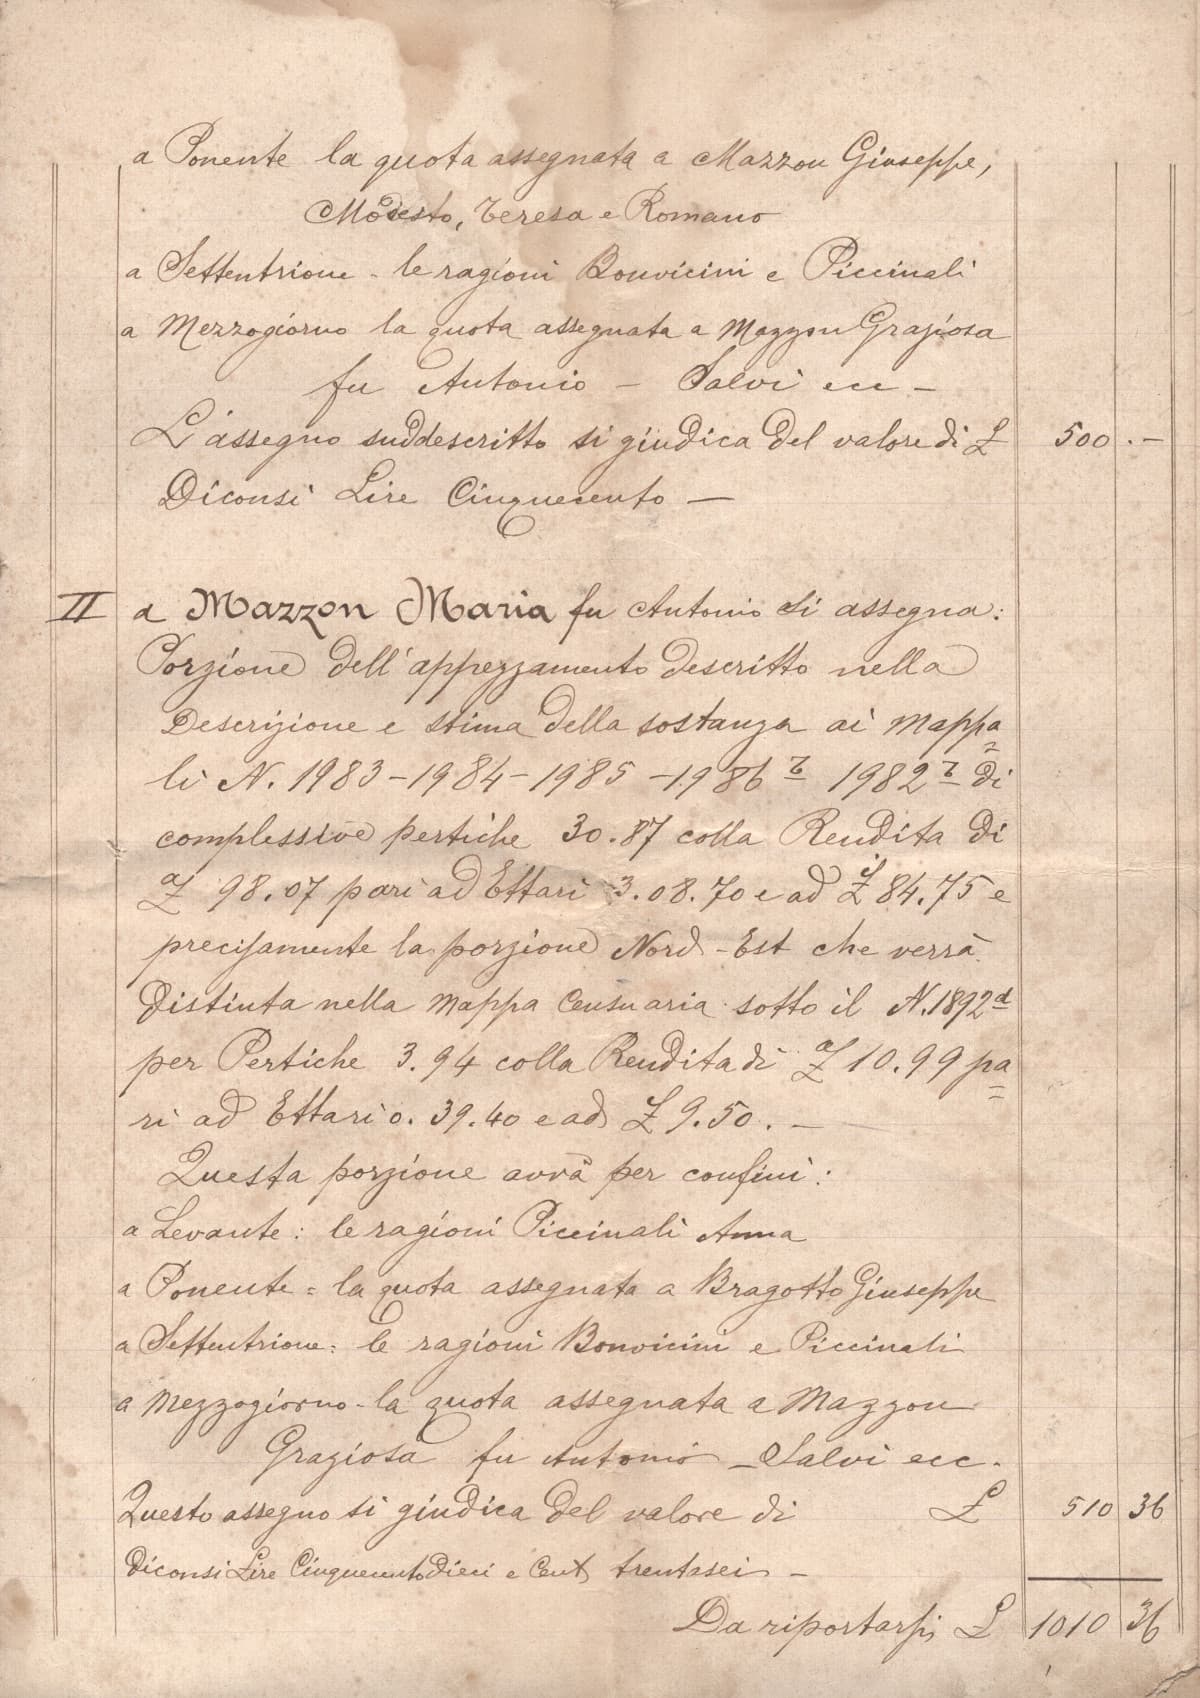 a Ponente la quota assegnata a Mazzon Giuseppe,
Modesto, Teresa e Romano
a Settentrione - le ragioni Bonvicini e Piccinali
a Mezzogiorno la quota assegnata a Mazzon Graziosa
fu Antonio - Salvi ecc -
L'assegno suddescritto si giudica del valore di £ 500 . -
Diconsi Lire Cinquecento -
II a Mazzon Maria fu Antonio si assegna:
Porzione dell'appezzamento descritto nella
Descrizione e stima della sostanza ai mappa
li N. 1983 - 1984 - 1985 - 1986 b 1982 b di
complessive pertiche 30.87 colla Rendita di
a£ 98.07 pari ad Ettari 3.08.70 e ad i£ 84.75 e
precisamente la porzione Nord-Est che verrà
distinta nella mappa Censuaria sotto il N. 1892 d
per Pertiche 3.94 colla Rendita di a£ 10.99 pa
ri ad Ettari 0.39.40 e ad £ 9.50. -
Questa porzione avrà per confini:
a Levante: le ragioni Piccinali Anna
a Ponente = la quota assegnata a Bragotto Giuseppe
a Settentrione: le ragioni Bonvicini e Piccinali
a mezzogiorno - la quota assegnata a Mazzon
Graziosa fu Antonio - Salvi ecc -
Questo assegno si giudica del valore di £ 510 36
Diconsi Lire Cinquecento Dieci e Cent trentasei -
Da riportarsi £ 1010 36